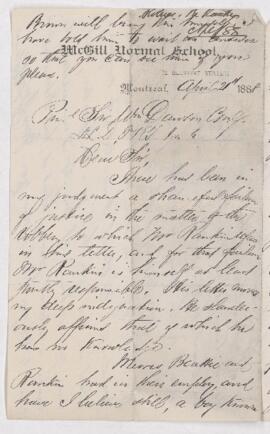 Brown will bring this myself. I
have told him to wait an answer
so that you can see him if you
please.
McGill Normal School,
32 BELMONT STREET
Montreal, April 21st 1888
Sir Wm Dawson
LL.D. F.R.S.
Dear Sir,
There has been in
my judgment a shameful failure
of justice in the matter of the
robbery to which Mr Rankin refers
in this letter, and for that failure
Mr Rankin is himself at least
partly responsible. His letter moves
my deep indignation. He slander-
ously affirms that of which he
has no knowledge.
Messrs Beattie and
Rankin had in their employ, and
have I believe still, a boy known